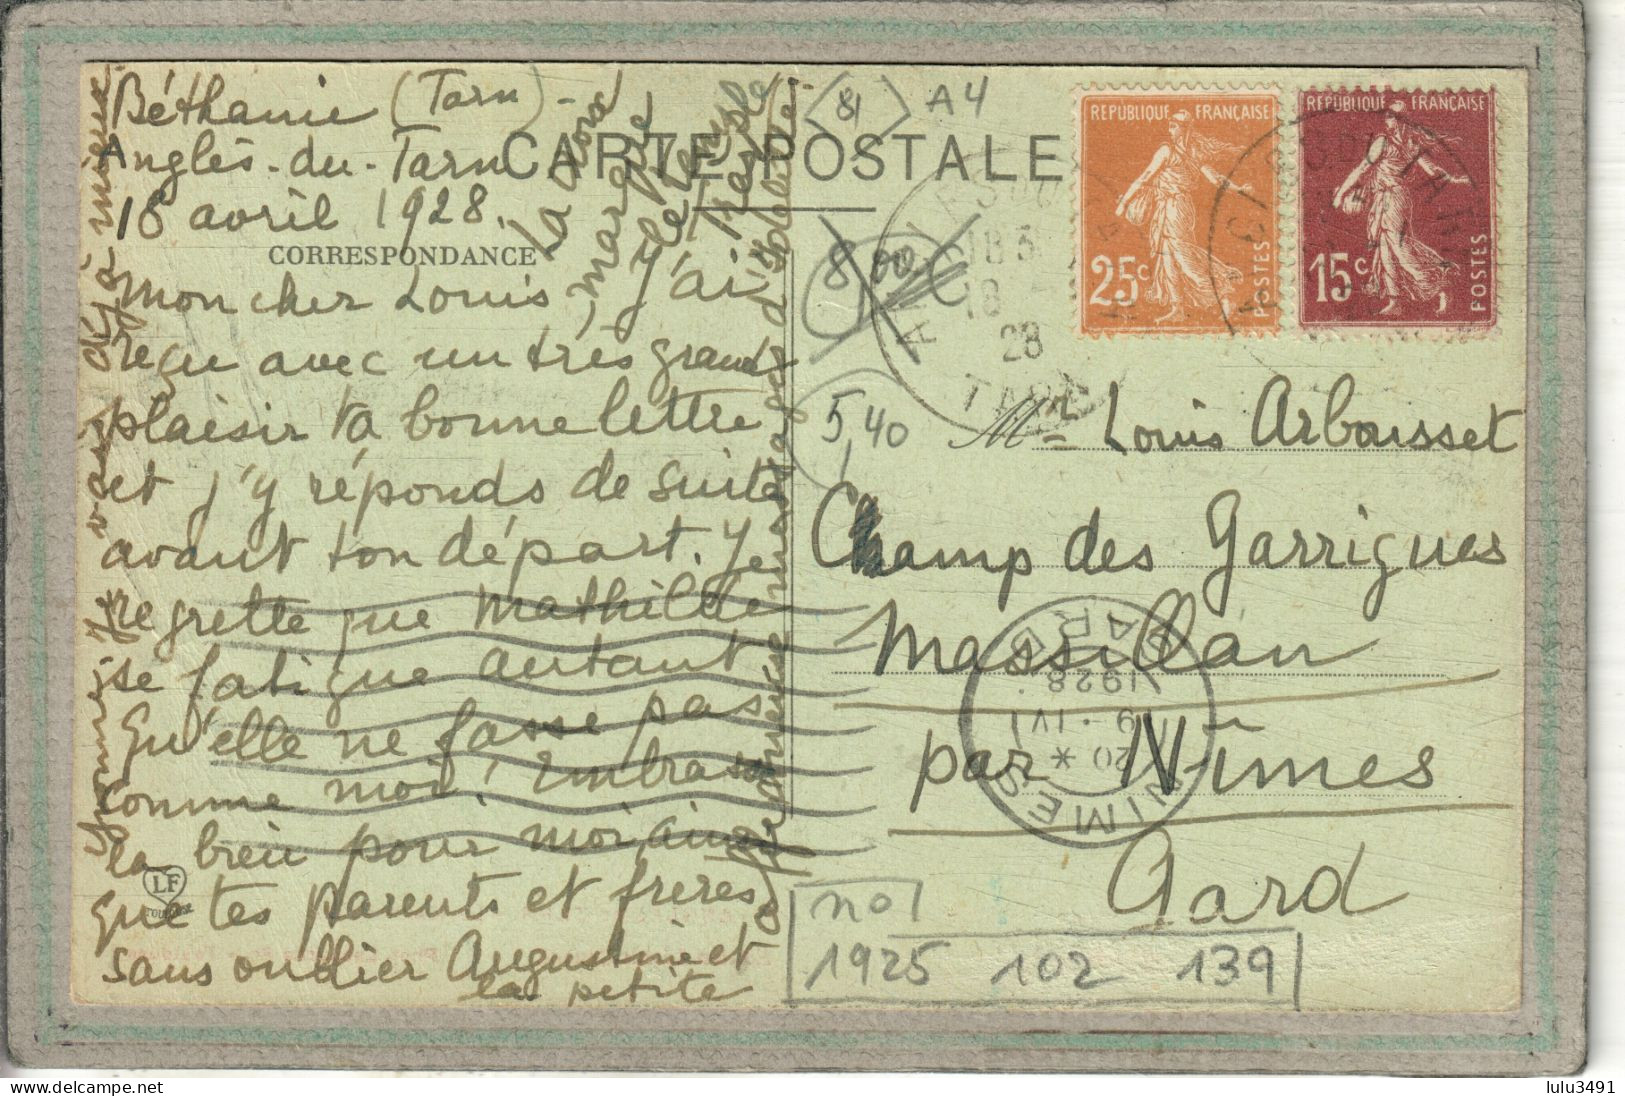 Béthanie (Tarn) -
Anglès-du-Tarn
18 avril 1928.
CARTE POSTALE
CORRESPONDANCE
mon cher Louis, j'ai
reçu avec un très grand
plaisir ta bonne lettre
et j'y réponds de suite
avant ton départ. Je
regrette que Mathilde
se fatigue autant
Qu'elle ne fasse pas
comme moi! Embrasse
la bien pour moi, ainsi
que tes parents et frères
sans oublier Augustine et
la petite
déjà mieux
LF
TOULOUSE
81
A4
8,00
5,40
RÉPUBLIQUE FRANÇAISE
25c
POSTES
RÉPUBLIQUE FRANÇAISE
15c
POSTES
ANGLES DU TARN
18 -
28
TARN
Mr Louis Arbousset
Champ des Garrigues
Massillan
par Nîmes
Gard
NIMES
GARD
20 *
1928
no 1
1925 102 139
lulu3491